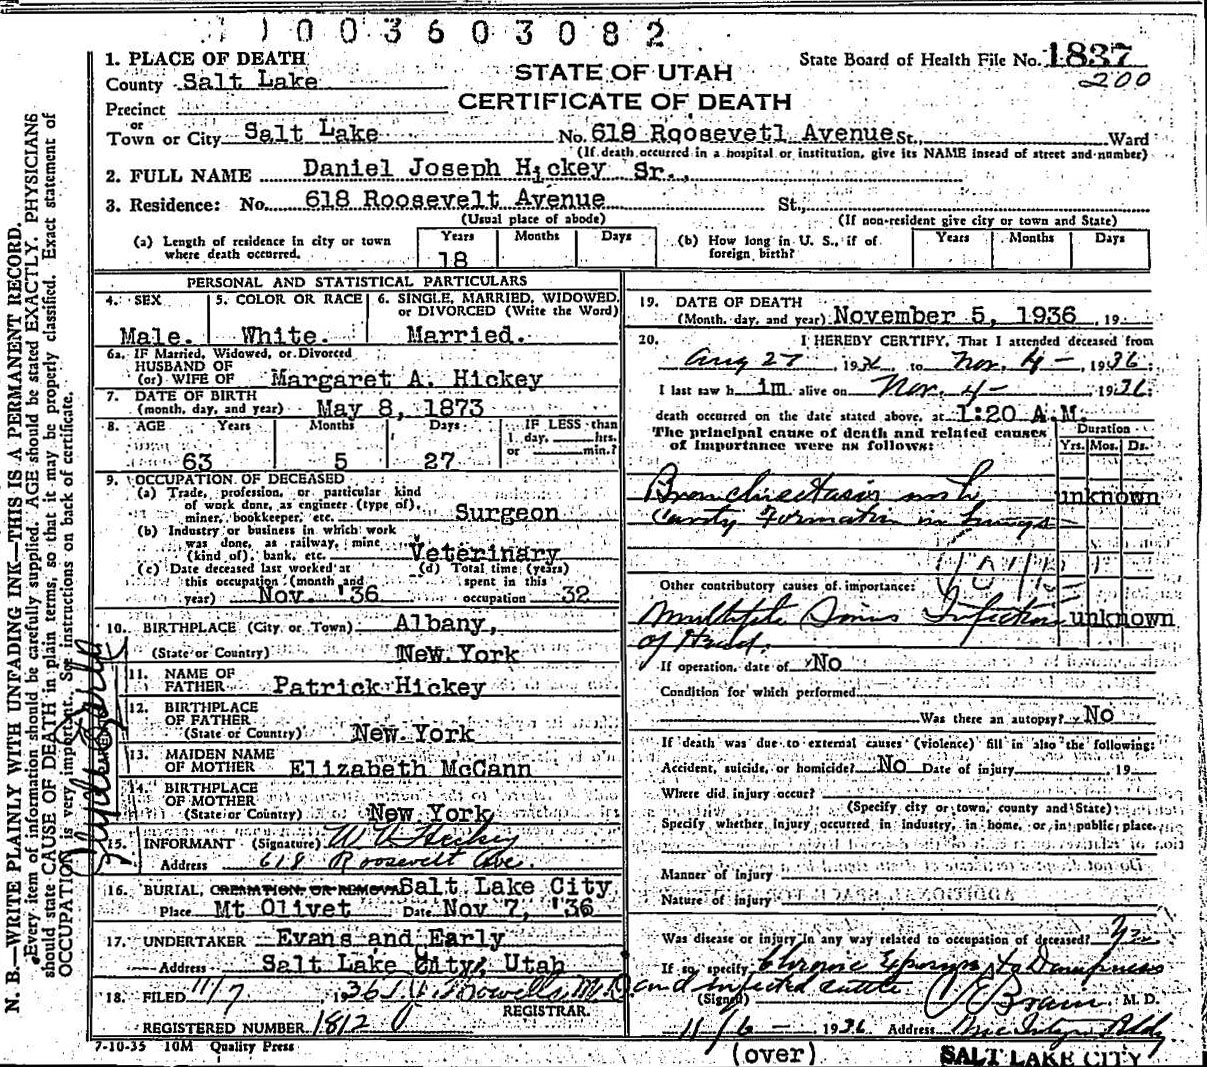 1003603082
1. PLACE OF DEATH
County Salt Lake
Precinct
or
Town or City Salt Lake
STATE OF UTAH
CERTIFICATE OF DEATH
State Board of Health File No. 1837
200
No. 618 Roosevetl Avenue St., Ward
(If death occurred in a hospital or institution, give its NAME insead of street and number)
2. FULL NAME Daniel Joseph Hickey Sr.,
3. Residence: No. 618 Roosevelt Avenue St.,
(Usual place of abode) (If non-resident give city or town and State)
(a) Length of residence in city or town where death occurred. Years 18 Months Days
(b) How long in U. S., if of foreign birth? Years Months Days
PERSONAL AND STATISTICAL PARTICULARS
4. SEX Male.
5. COLOR OR RACE White.
6. SINGLE, MARRIED, WIDOWED, or DIVORCED (Write the Word) Married.
6a. IF Married, Widowed, or Divorced
HUSBAND OF
(or) WIFE OF Margaret A. Hickey
7. DATE OF BIRTH
(month, day, and year) May 8, 1873
8. AGE Years 63 Months 5 Days 27
IF LESS than
1 day, hrs.
or min.?
9. OCCUPATION OF DECEASED
(a) Trade, profession, or particular kind
of work done, as engineer (type of),
miner, bookkeeper, etc. Surgeon
(b) Industry or business in which work
was done, as railway, mine
(kind of), bank, etc. Veterinary
(c) Date deceased last worked at
this occupation (month and
year) Nov. '36
(d) Total time (years)
spent in this
occupation 32
10. BIRTHPLACE (City or Town) Albany,
(State or Country) New York
11. NAME OF
FATHER Patrick Hickey
12. BIRTHPLACE
OF FATHER
(State or Country) New York
13. MAIDEN NAME
OF MOTHER Elizabeth McCann
14. BIRTHPLACE
OF MOTHER
(State or Country) New York
15. INFORMANT (Signature) Hickey
Address 618 Roosevelt Ave.
16. BURIAL, CREMATION, OR REMOVAL Salt Lake City
Place Mt Olivet Date Nov 7, '36
17. UNDERTAKER Evans and Early
Address Salt Lake City, Utah
18. FILED 11/7 1936 M.D.
REGISTRAR.
REGISTERED NUMBER 1812
7-10-35 10M Quality Press
19. DATE OF DEATH
(Month, day, and year) November 5, 1936, 19
20. I HEREBY CERTIFY, That I attended deceased from
Aug 27, 1936 to Nov. 4 - , 1936.
I last saw h im alive on Nov. 4 - 1936.
death occurred on the date stated above, at 1:20 A.M.
The principal cause of death and related causes
of importance were as follows:
Duration
Yrs. Mos. Ds.
Bronchiectasis with unknown
Cavity Formation in lungs
Other contributory causes of importance:
Multiple Sinus Infection unknown
of Head.
If operation, date of No
Condition for which performed
Was there an autopsy? No
If death was due to external causes (violence) fill in also the following:
Accident, suicide, or homicide? No Date of injury 19
Where did injury occur?
(Specify city or town, county and State)
Specify whether injury occurred in industry, in home, or in public place.
Manner of injury
Nature of injury
Was disease or injury in any way related to occupation of deceased? Yes
If so, specify Chronic Exposure to Dampness
and infected cattle
(Signed) M. D.
11/6 - 1936 Address McIntyre Bldg
(over) SALT LAKE CITY
N. B.—WRITE PLAINLY WITH UNFADING INK—THIS IS A PERMANENT RECORD.
Every item of information should be carefully supplied. AGE should be stated EXACTLY. PHYSICIANS
should state CAUSE OF DEATH in plain terms, so that it may be properly classified. Exact statement of
OCCUPATION is very important. See instructions on back of certificate.